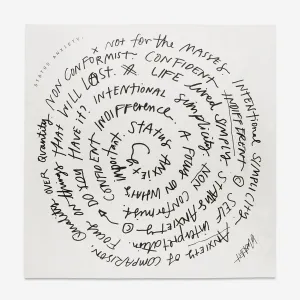 STATUS ANXIETY.
x NOT for the MASSES. INTENTIONAL SIMPLICITY
© SELF interpretation
ANXIETY of COMPARISON.
Quality over Quantity.
NON CONFORMIST. CONFIDENT
LIFE lived simply.
INDIFFERENT
Focus on things that WILL LAST.
DO YOU HAVE IT? INTENTIONAL
simplicity. NON CONFORMIST.
STATUS ANXIETY
CONFIDENT INDIFFERENCE.
A FOCUS ON WHAT'S
Important
STATUS ANXIETY